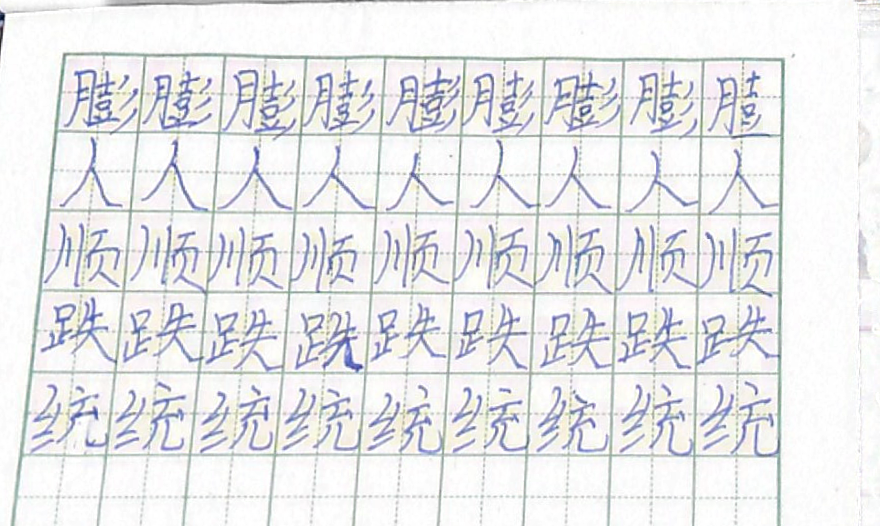 膨膨膨膨膨膨膨膨
人人人人人人人人人
顺顺顺顺顺顺顺顺顺
跌跌跌跌跌跌跌跌跌
统统统统统统统统统